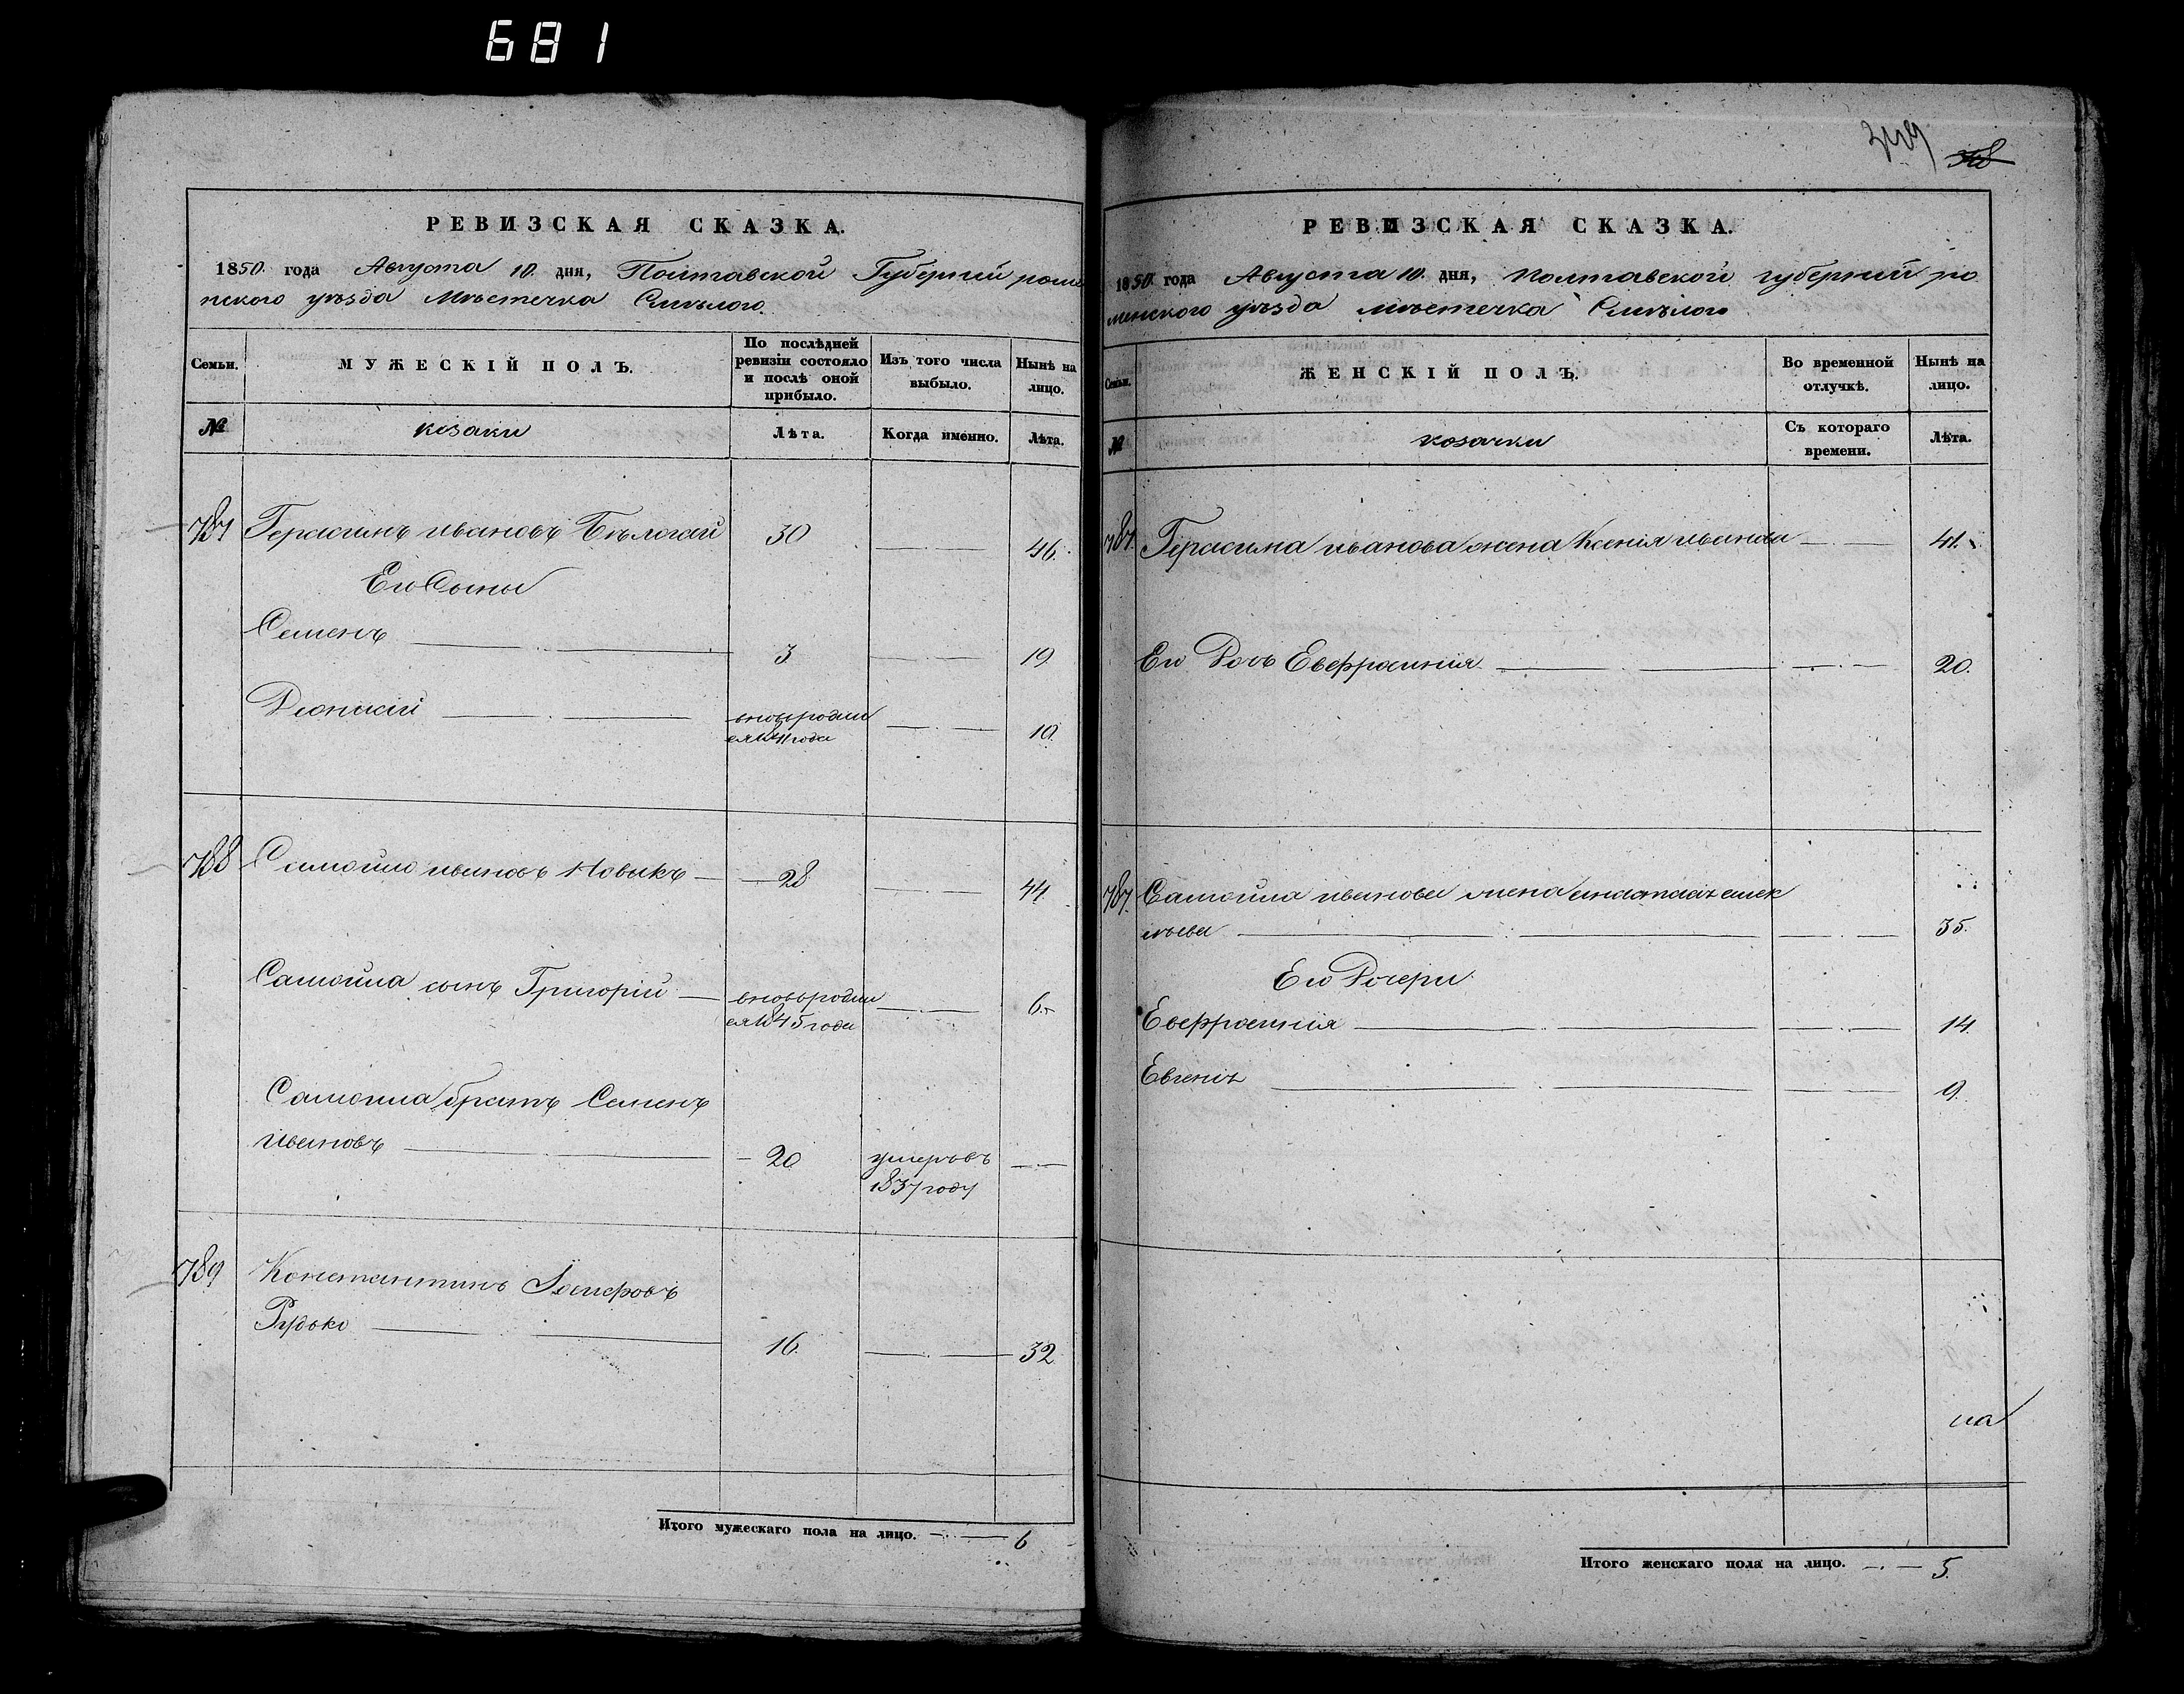 681
РЕВИЗСКАЯ СКАЗКА.
1850. года Августа 10. дня, Полтавской Губернии роме
нского уѣзда Мѣстечка Смѣлого.
Семьи.
МУЖЕСКІЙ ПОЛЪ.
По послѣдней ревизіи состояло и послѣ оной прибыло.
Изъ того числа выбыло.
Нынѣ на лицо.
№
козаки
Лѣта.
Когда именно.
Лѣта.
787 Герасимъ ивановъ Бѣлогай 30 46.
Его Сыны
Семенъ 3 19
Дионисій вновьродил
ся 1841 года 10.
788 Самойло ивановъ Новикъ 28 44.
Самойла сынъ Григорій вновьродил 6.
ся 1845 года
Самойла братъ Семенъ
ивановъ 20 умеръ въ
1837 году
789 Константинъ
Рудько 16. 32
Итого мужескаго пола на лицо. 6
349 348
РЕВИЗСКАЯ СКАЗКА.
1850 года Августа 10. дня, полтавской губерний ро
менского уѣзда мѣстечка Смѣлого
Семьи.
ЖЕНСКІЙ ПОЛЪ.
Во временной отлучкѣ.
Нынѣ на лицо.
№
козачки
Съ котораго времени.
Лѣта.
787. Герасима иванова жена Ксенія иванова 41.
Его Дочь Евфросинія 20.
787. Самойла иванова жена
35.
Его Дочери
Евфросинія 14.
Евгенія 9.
на
Итого женскаго пола на лицо. 5.